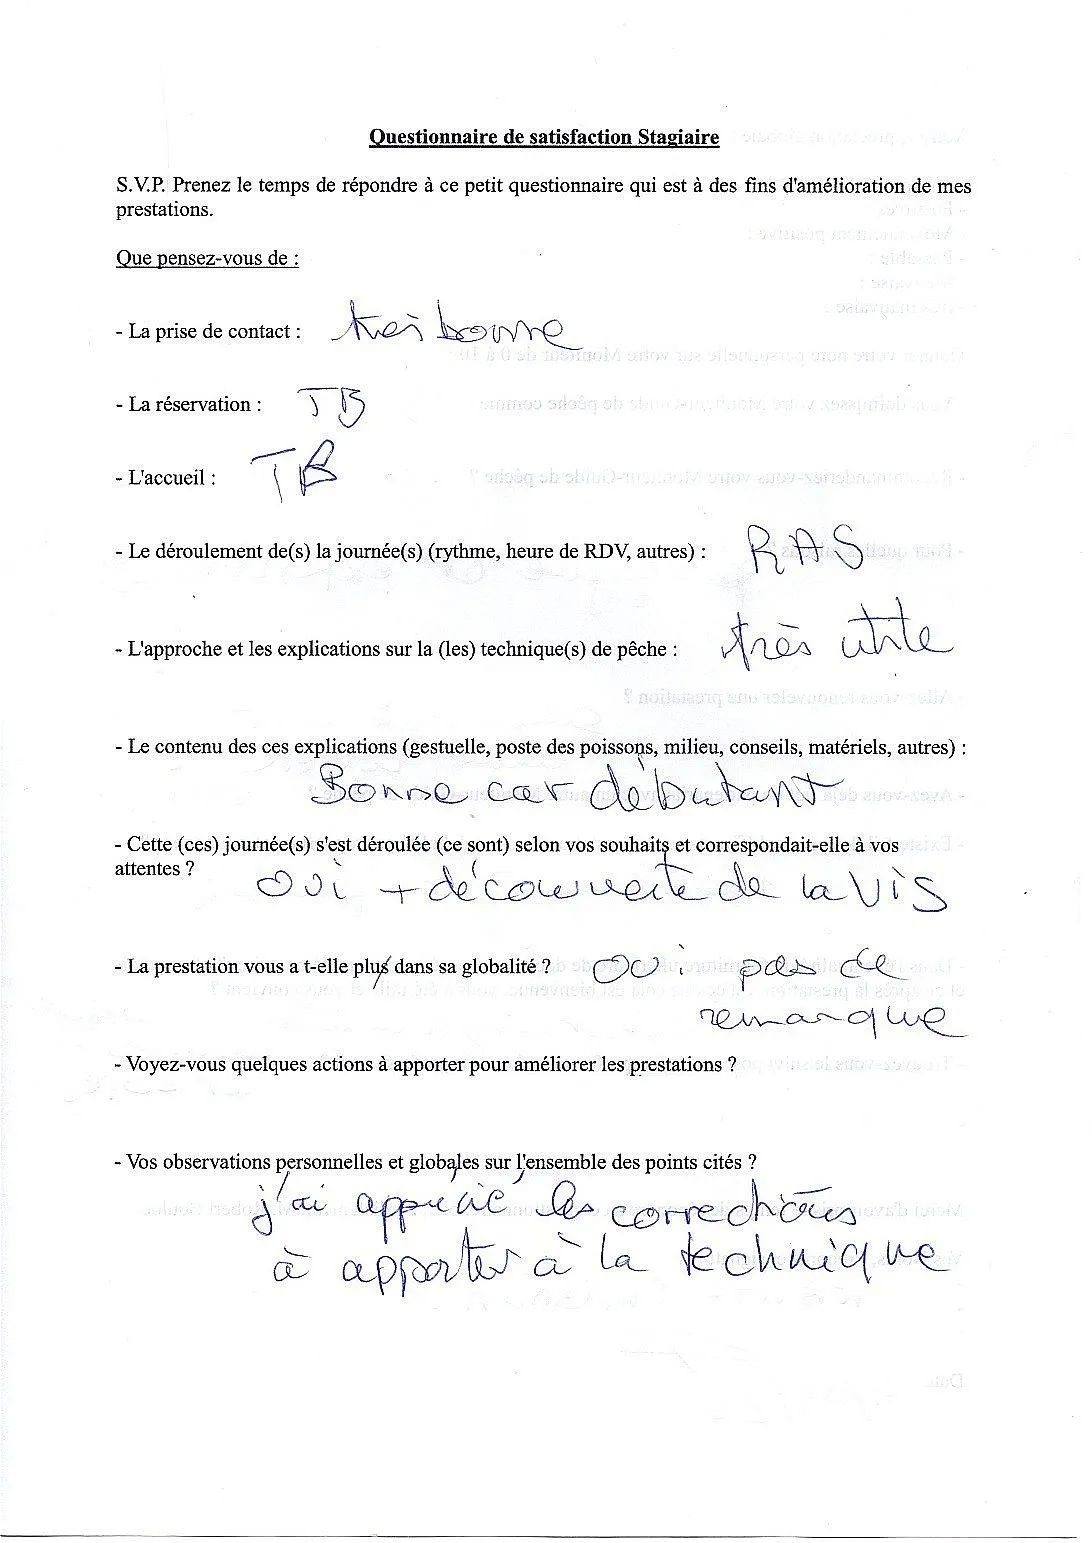 Questionnaire de satisfaction Stagiaire
S.V.P. Prenez le temps de répondre à ce petit questionnaire qui est à des fins d'amélioration de mes
prestations.
Que pensez-vous de :
- La prise de contact : très bonne
- La réservation : TB
- L'accueil : TB
- Le déroulement de(s) la journée(s) (rythme, heure de RDV, autres) : RAS
- L'approche et les explications sur la (les) technique(s) de pêche : très utile
- Le contenu des ces explications (gestuelle, poste des poissons, milieu, conseils, matériels, autres) :
Bonne car débutant
- Cette (ces) journée(s) s'est déroulée (ce sont) selon vos souhaits et correspondait-elle à vos
attentes ? oui + découverte de la Vis
- La prestation vous a t-elle plus dans sa globalité ? oui pas de
remarque
- Voyez-vous quelques actions à apporter pour améliorer les prestations ?
- Vos observations personnelles et globales sur l'ensemble des points cités ?
j'ai apprécié les corrections
à apporter à la technique